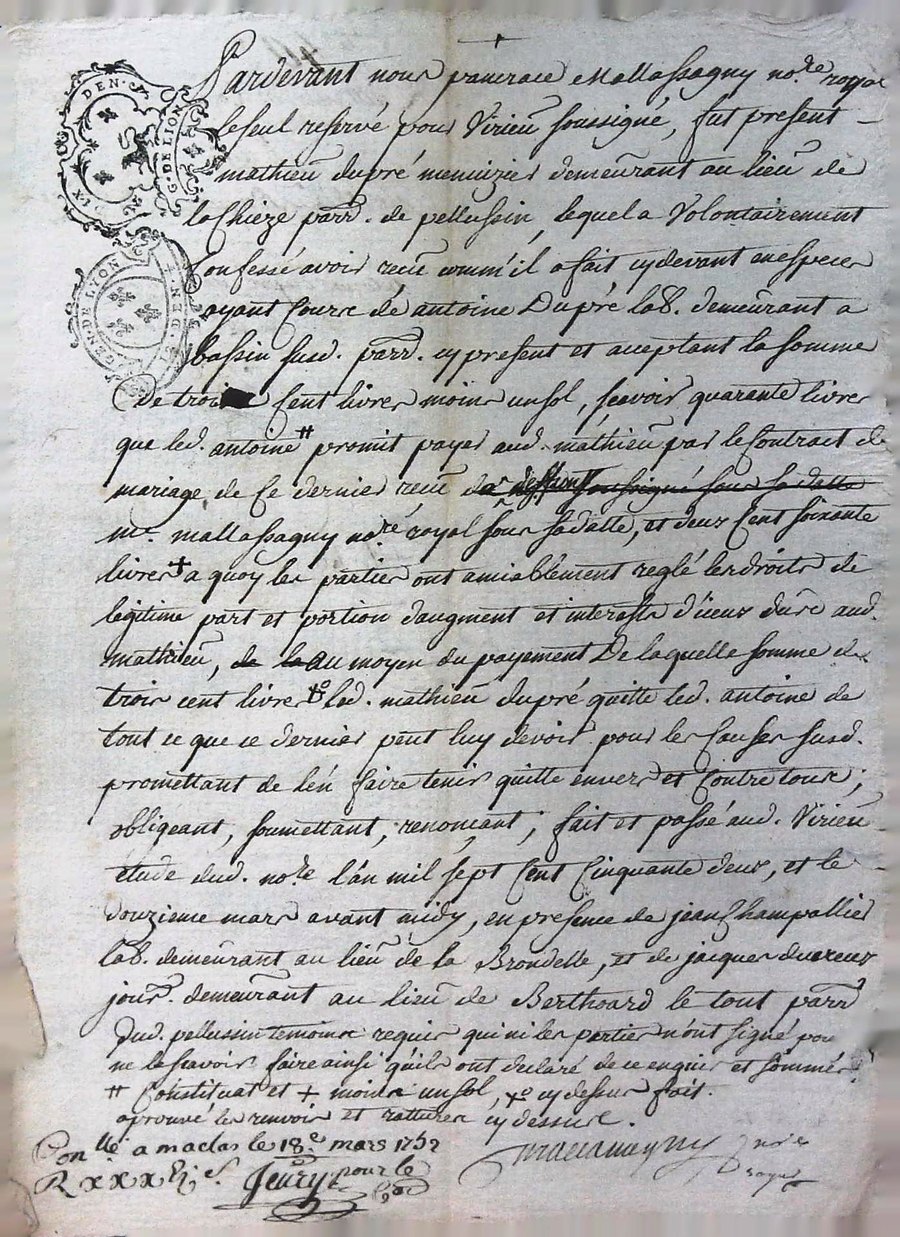 Pardevant nous pancrace Mallassagny no.re royal
le seul reservé pour Virieu soussigné, fut present
mathieu dupré menuizier demeurant au lieu de
la Chieze parr. de pellussin, lequel a Volontairement
Confessé avoir receu comm'il a fait cy devant en especes
ayant Cours de antoine Dupré lab. demeurant a
bassin susd. parr. cy present et aceptant la somme
De trois Cent livres moins un sol, scavoir quarante livres
que led. antoine # promit payer aud. mathieu par le Contract de
mariage de Ce dernier receu deffunt soussigné sous sa datte
m.e mallassagny no.re royal sous sa datte, et deux Cent soixante
livres + a quoy les parties ont amiablement reglé les droits de
legitime part et portion d'augment et interests d'iceux dus aud.
mathieu, de la au moyen du payement De laquelle somme de
trois cent livres led. mathieu dupré quitte led. antoine de
tout ce que ce dernier peut luy devoir pour les Causes susd.
promettant de l'en faire tenir quitte envers et Contre tous;
obligeant, soumettant, renoncant, fait et passé aud. Virieu
étude dud. no.re l'an mil sept Cent Cinquante deux, et le
douzieme mars avant midy, en presence de jean Champallier
lab. demeurant au lieu de la Brondelle, et de jacques ducreux
jour. demeurant au lieu de Berthoard le tout parr.
dud. pellussin temoins requis qui ni les parties n'ont signé pour
ne le scavoir faire ainsi qu'ils ont declaré de ce enquis et sommés
# Constituat et + moins un sol, xo cy dessus fait.
aprouvé les renvois et ratures cy dessus.
Mallassagny no.re royal
Con.llé a maclas le 18.e mars 1752
R xxxx
Jeury pour le
GEN. DE LION
GEN. DE LYON